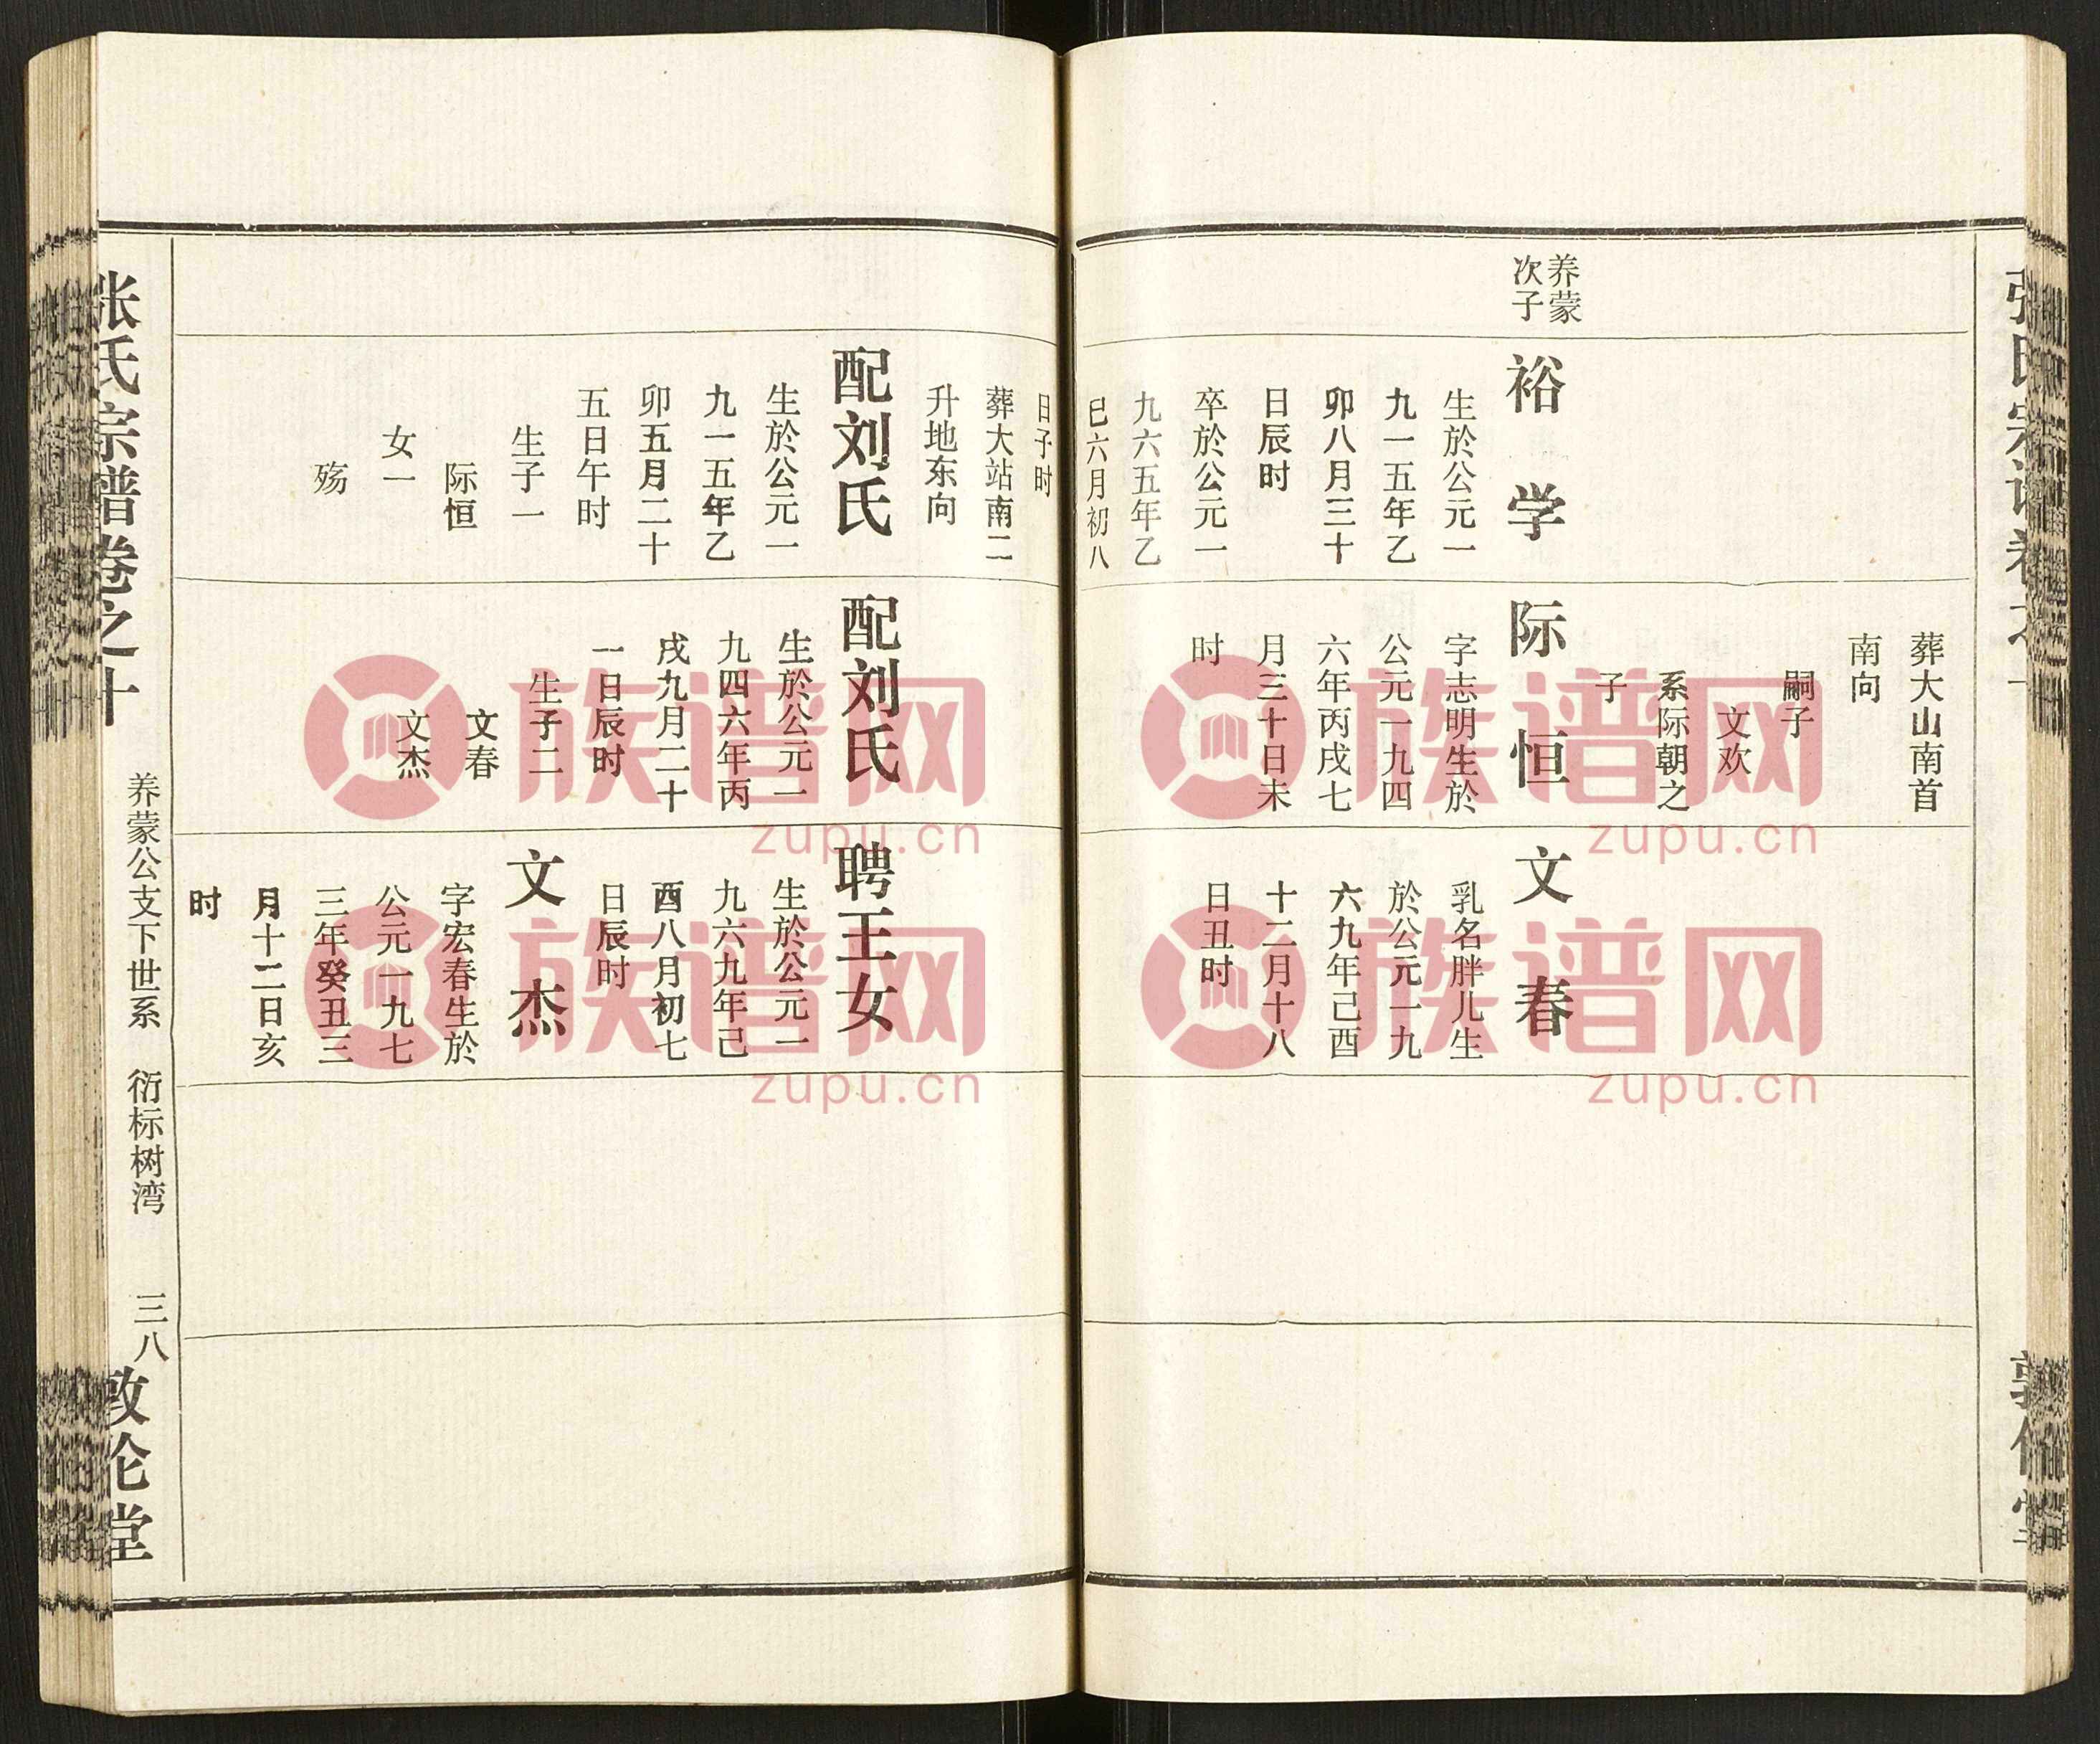 养蒙
次子
裕学
生於公元一
九一五年乙
卯八月三十
日辰时
卒於公元一
九六五年乙
巳六月初八
葬大山南首
南向
嗣子
文欢
系际朝之
子
际恒
字志明生於
公元一九四
六年丙戌七
月三十日未
时
文春
乳名胖儿生
於公元一九
六九年己酉
十二月十八
日丑时
日子时
葬大站南二
升地东向
配刘氏
生於公元一
九一五年乙
卯五月二十
五日午时
生子一
际恒
女一
殇
配刘氏
生於公元一
九四六年丙
戌九月二十
一日辰时
生子二
文春
文杰
聘王女
生於公元一
九六九年己
酉八月初七
日辰时
文杰
字宏春生於
公元一九七
三年癸丑三
月十二日亥
时
张氏宗谱卷之十
养蒙公支下世系 衍标树湾 三八
敦伦堂
族谱网
zupu.cn
族谱网
zupu.cn
族谱网
zupu.cn
族谱网
zupu.cn